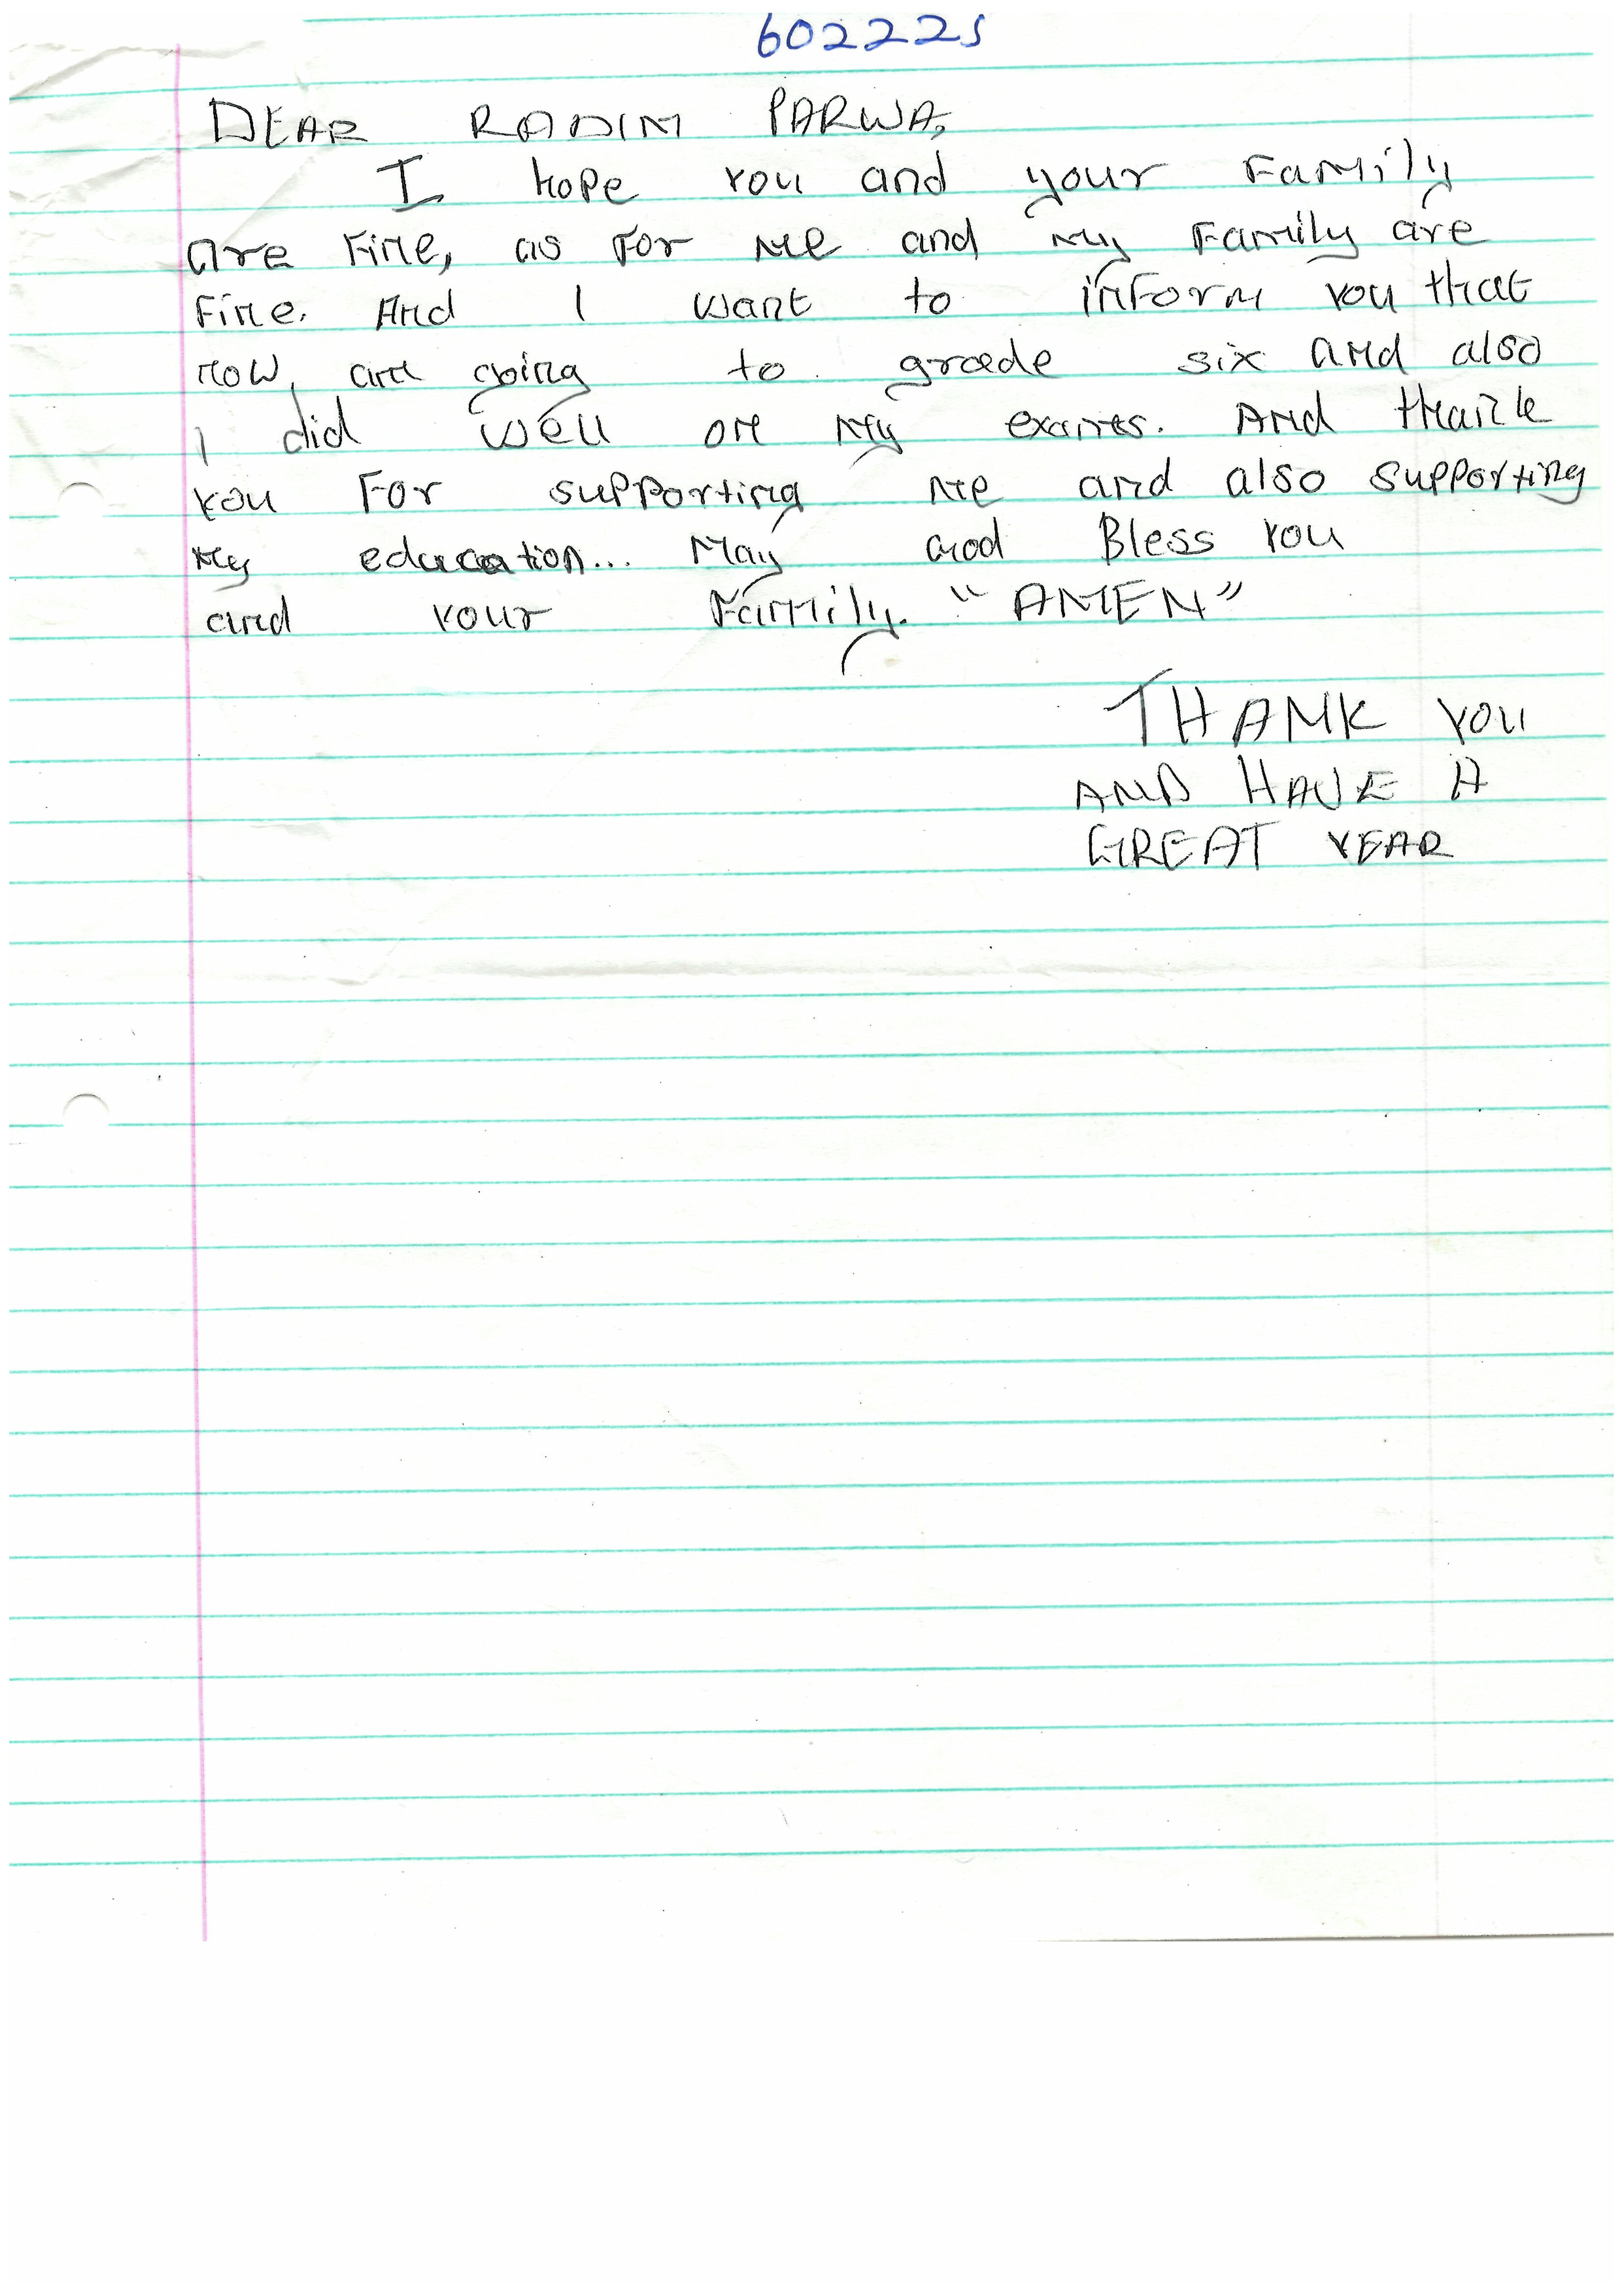 602225
DEAR RADIM PARWA,
I hope you and your Family
are Fine, as For me and my Family are
Fine. And I want to inForm you that
now, am going to grade six and also
I did well on my exams. And thank
you For supporting me and also supporting
my education... May God Bless you
and your Family. "AMEN"
THANK YOU
AND HAVE A
GREAT YEAR